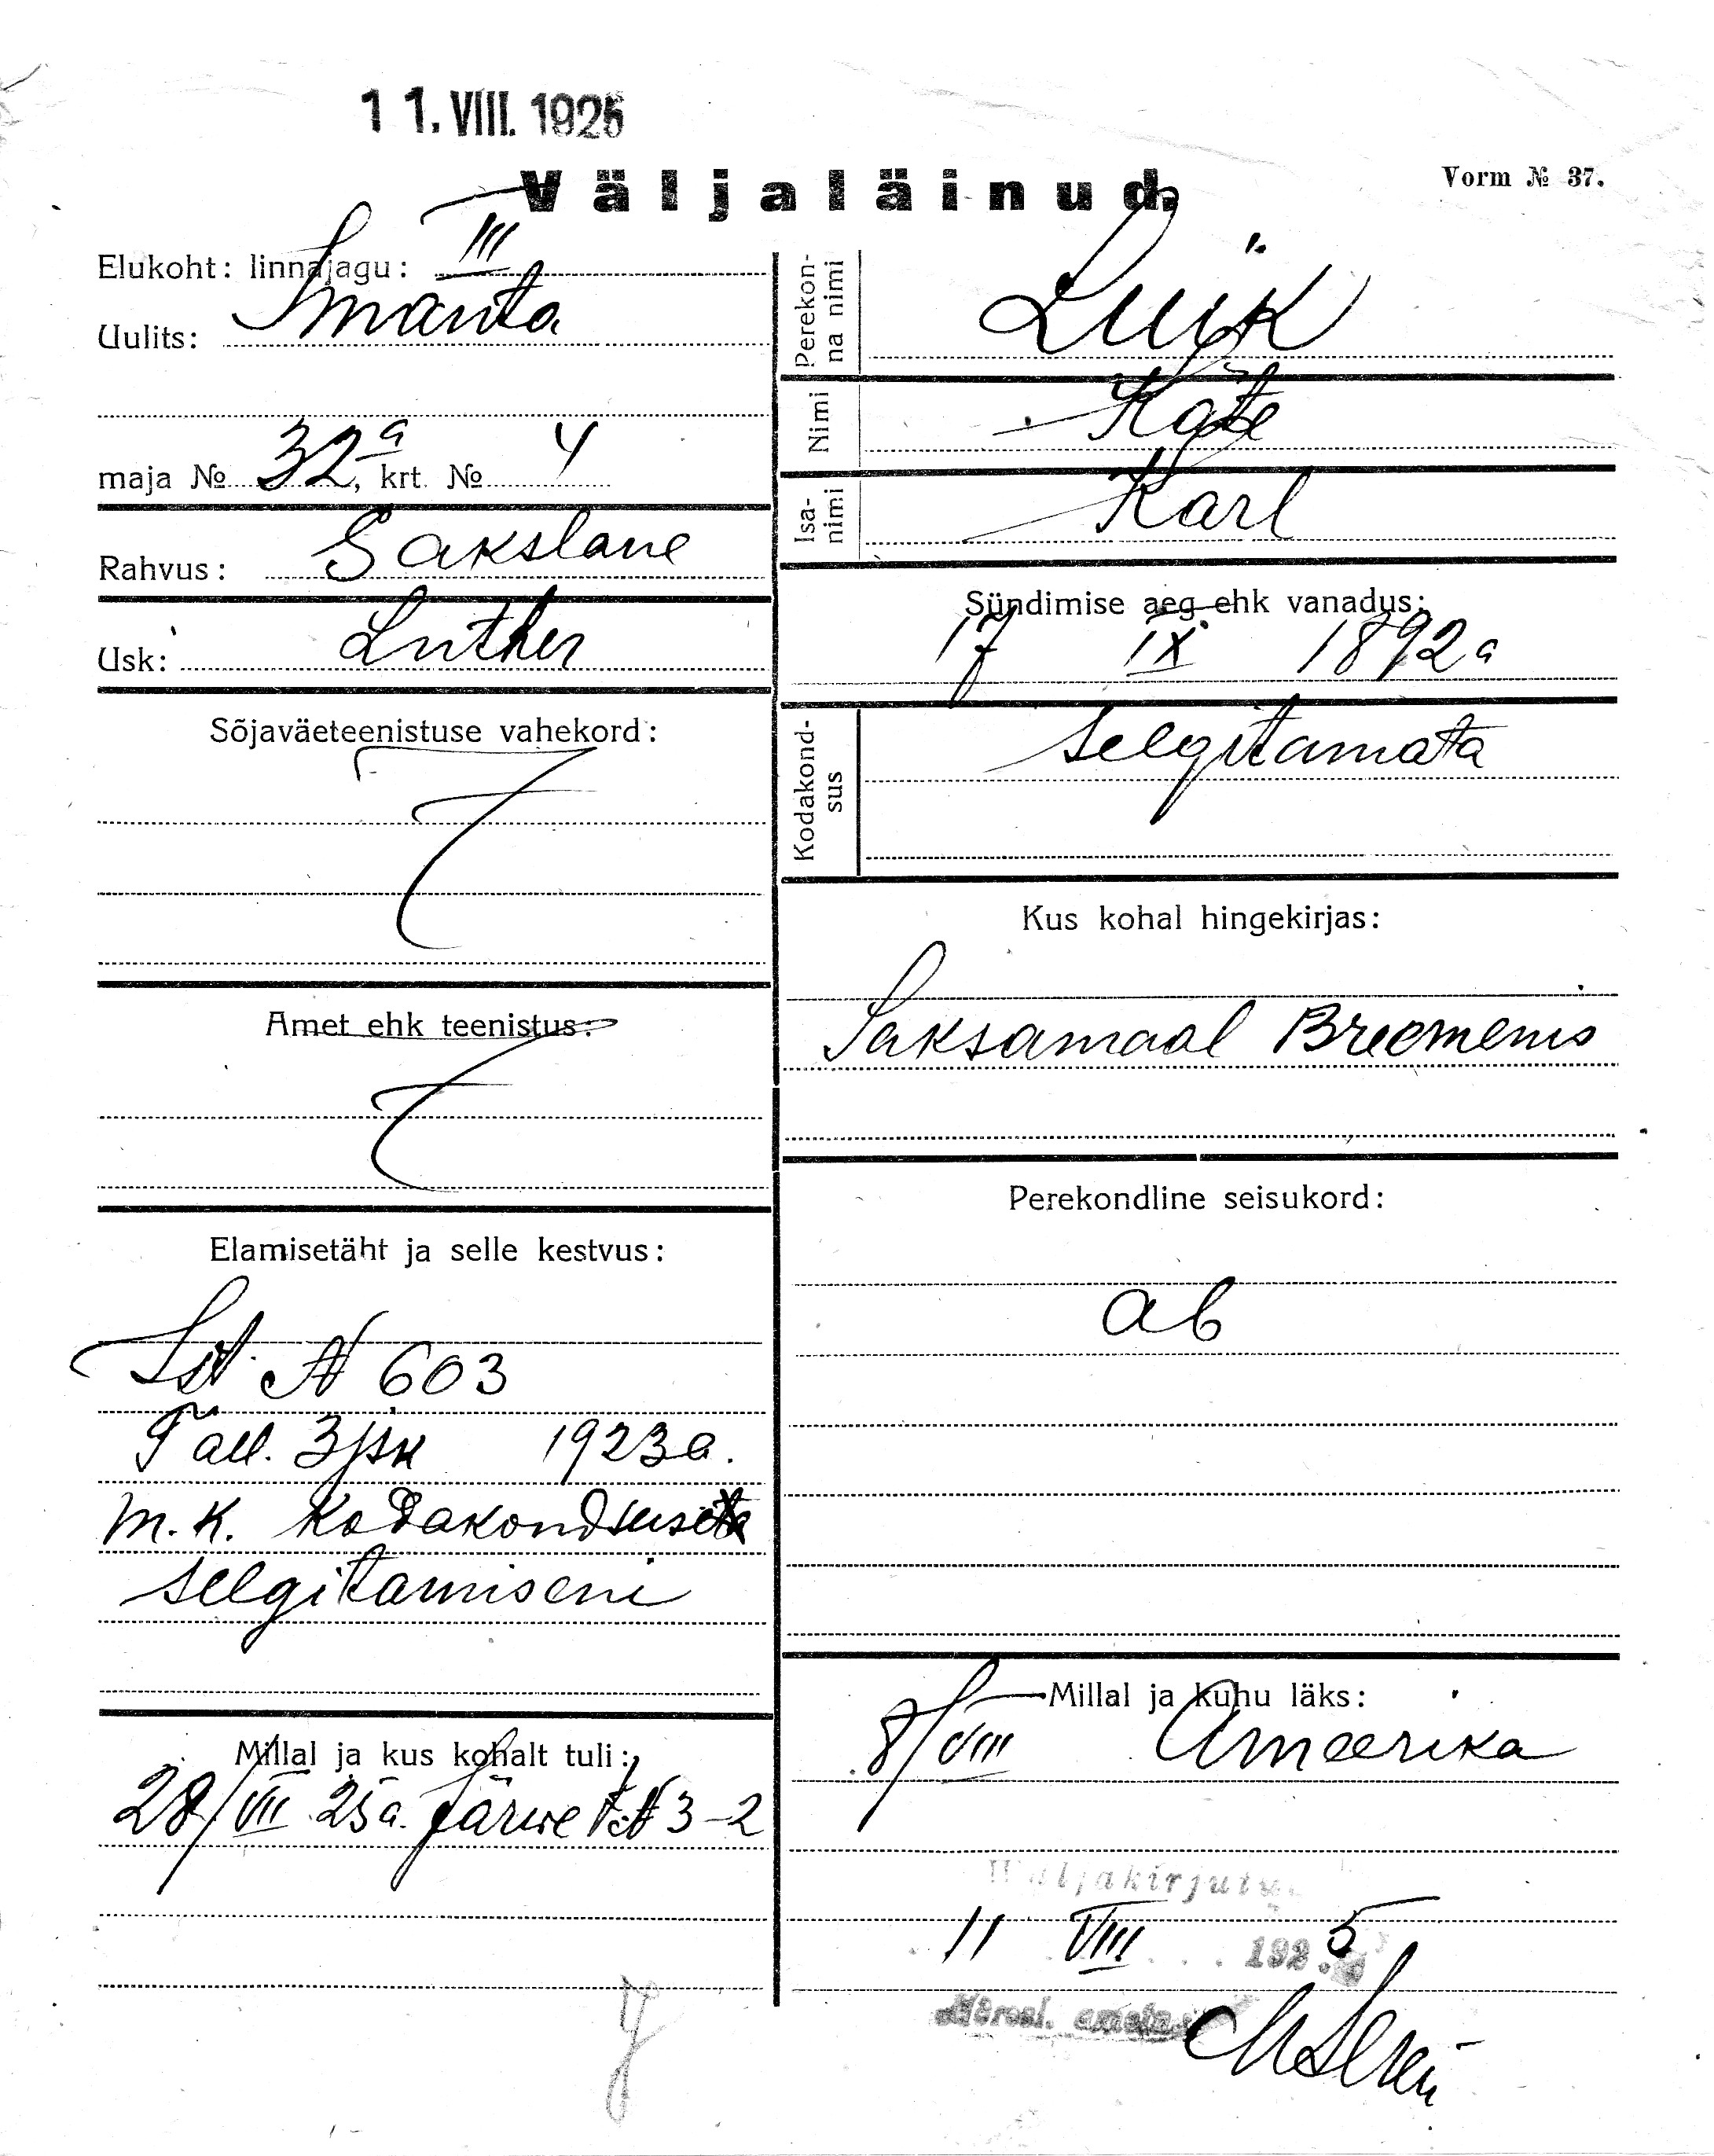 11. VIII. 1925
Väljaläinud.
Vorm № 37.
Elukoht: linnajagu: III
Uulits: Imanta
maja № 32a, krt. № 4
Rahvus: Sakslane
Usk: Luther
Sõjaväeteenistuse vahekord:
Amet ehk teenistus:
Elamisetäht ja selle kestvus:
N 603
Tall. 3 jsk 1923 a.
m. k. Kodakondsuseta
selgitamiseni
Millal ja kus kohalt tuli:
28/VII 25 a. Järwe N 3-2
Perekon-
na nimi
Luik
Nimi
Käte
Isa-
nimi
Karl
Sündimise aeg ehk vanadus:
17 IX 1892 a
Kodakond-
sus
selgitamata
Kus kohal hingekirjas:
Saksamaal Breemenis
Perekondline seisukord:
ab
Millal ja kuhu läks:
8/VIII Ameerika
Wäljakirjutatud
11 VIII 1925